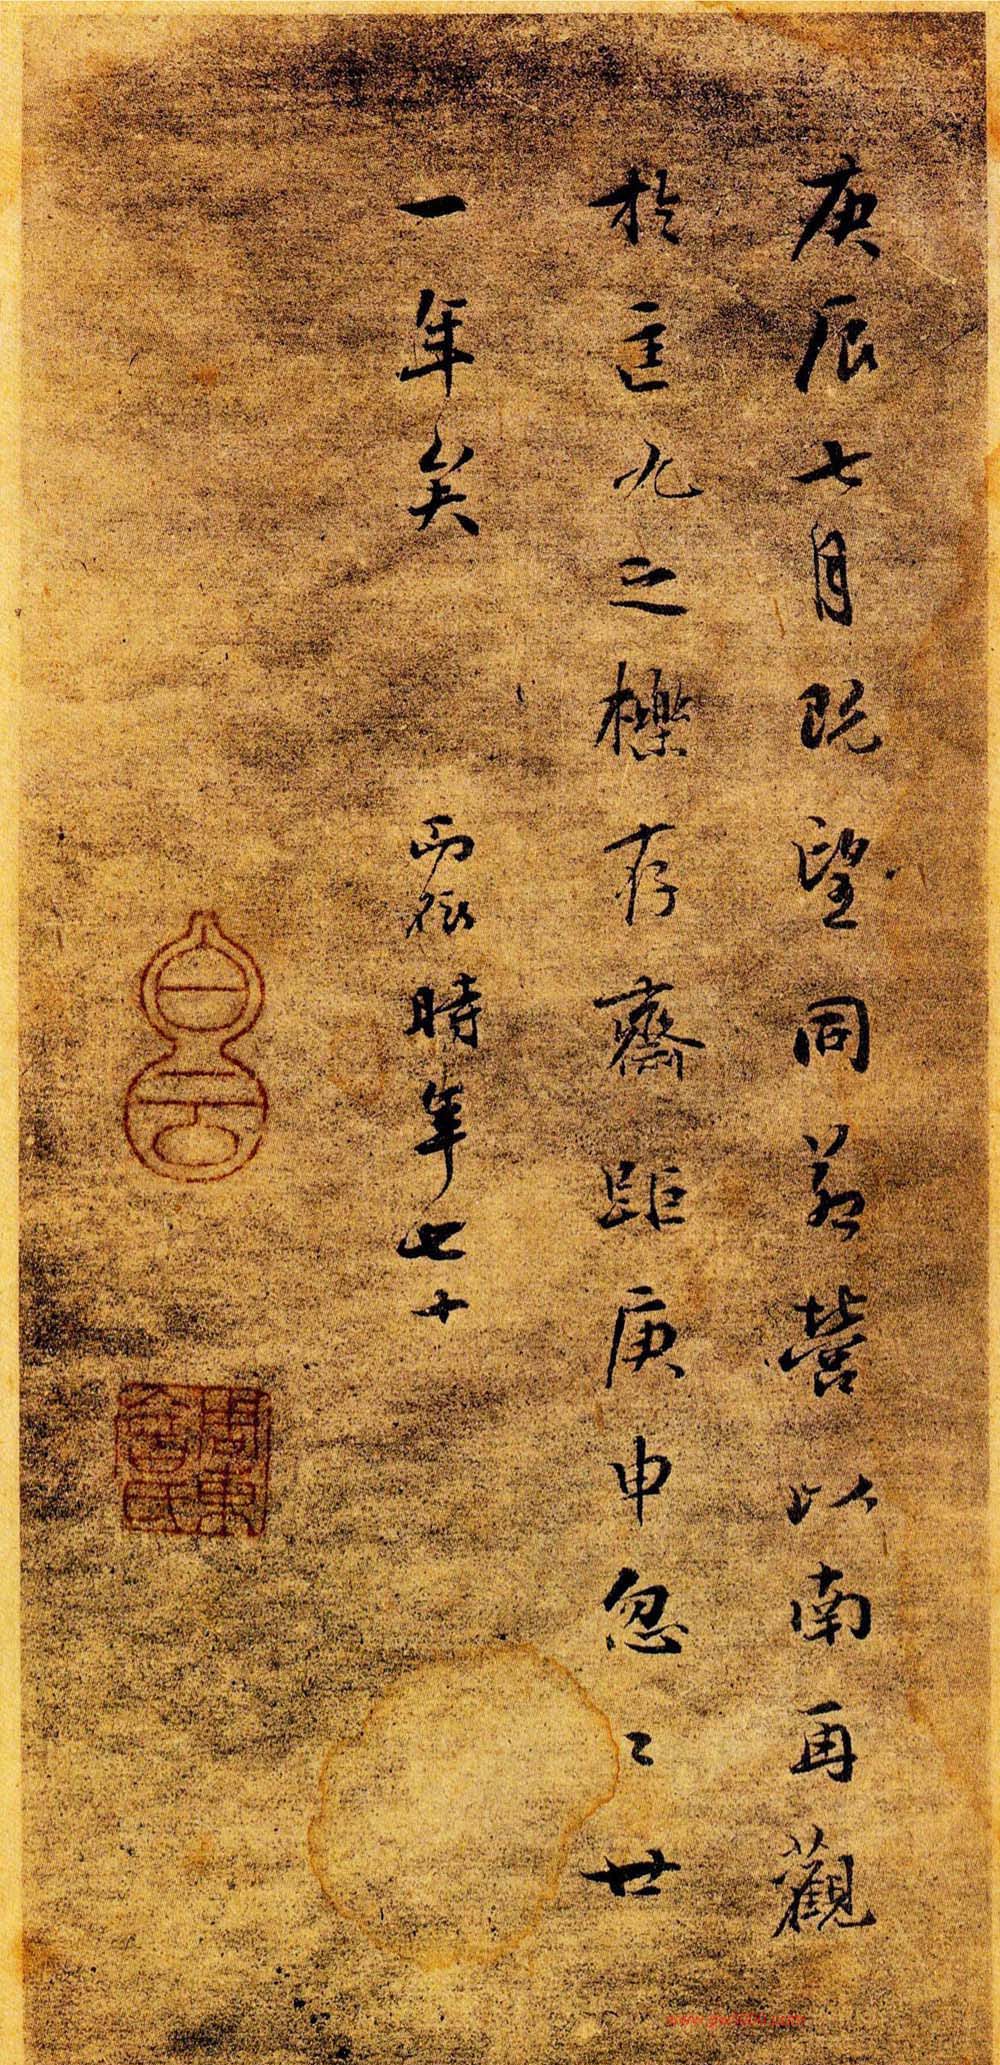 庚辰七月既望同營以南再觀
於匡九之櫟存齋距庚申忽〻廿
一年矣 時年七十
白云